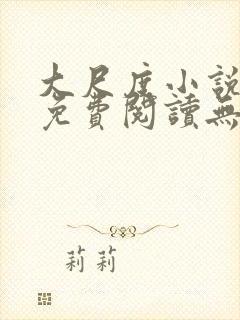 大尺度小說
免費閱讀無
莉莉